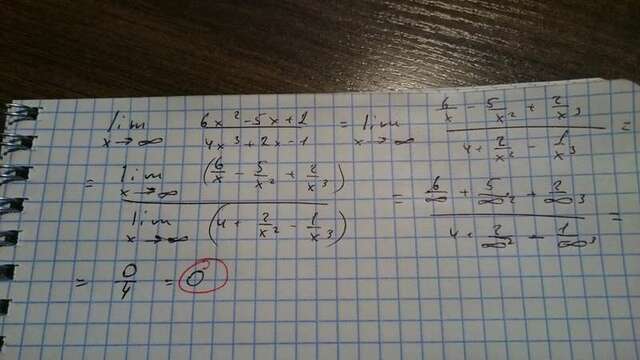 lim x→∞ (6x² - 5x + 2)/(4x³ + 2x - 1) = lim x→∞ (6/x - 5/x² + 2/x³)/(4 + 2/x² - 1/x³) =
= lim x→∞ (6/x - 5/x² + 2/x³) / lim x→∞ (4 + 2/x² - 1/x³) = (6/∞ + 5/∞² + 2/∞³)/(4 + 2/∞² - 1/∞³) =
= 0/4 = 0